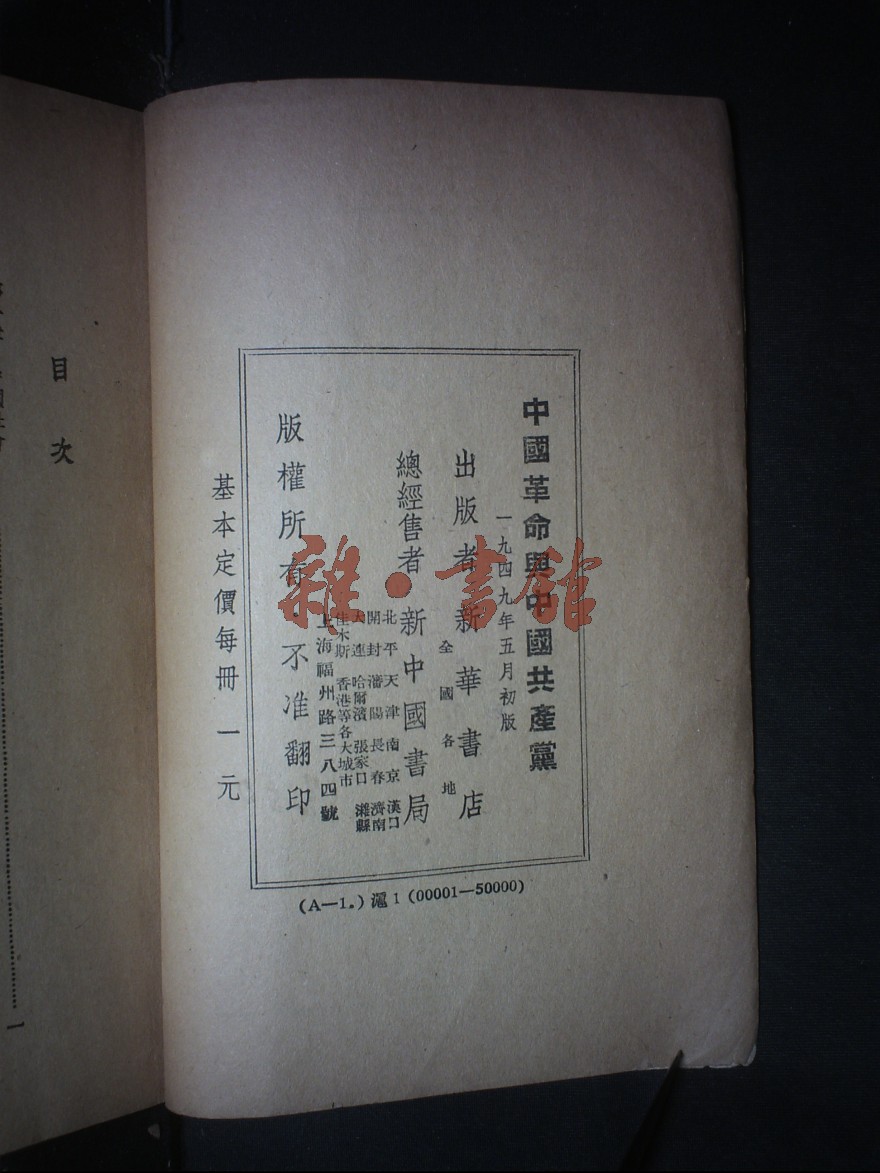 中國革命與中國共產黨
一九四九年五月初版
出版者 新華書店
全國各地
總經售者 新中國書局
北平 天津 南京 漢口
開封 瀋陽 長春 濟南
大連 哈爾濱 張家口 濰縣
佳木斯 香港等各大城市
上海福州路三八四號
版權所有·不准翻印
基本定價每冊一元
(A—1.) 滬1 (00001—50000)
目次
1
雜·書館